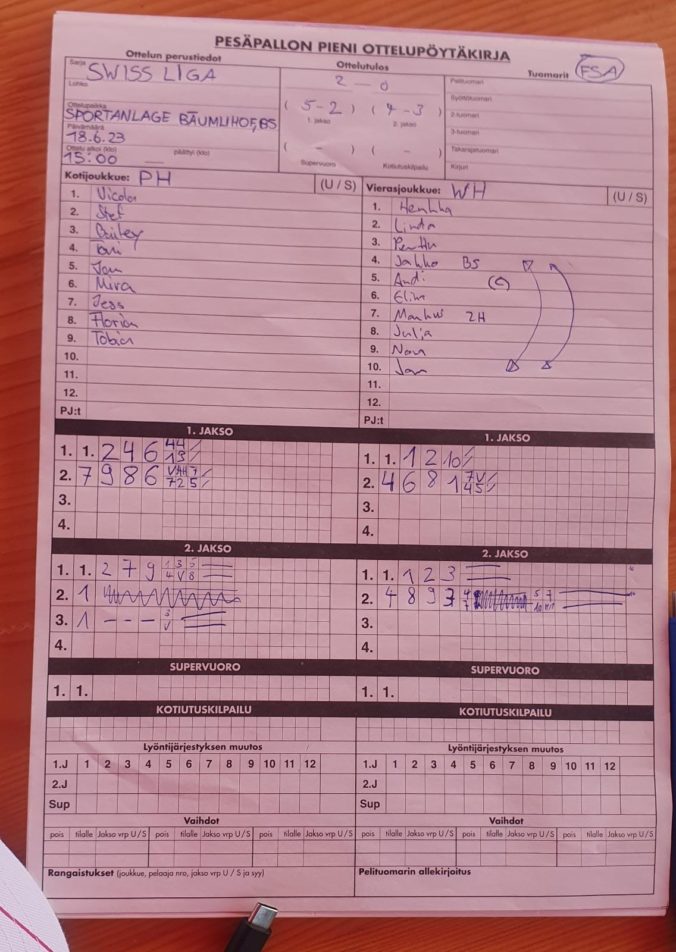 PESÄPALLON PIENI OTTELUPÖYTÄKIRJA
Ottelun perustiedot
Ottelutulos
Tuomarit FSA
Sarja SWISS LIGA
Lohko
2 – 0
Pelituomari
Syöttötuomari
Ottelupaikka
SPORTANLAGE BÄUMLIHOF, BS
(5-2) (4-3)
1. jakso 2. jakso
2-tuomari
Päivämäärä
18.6.23
3-tuomari
Ottelu alkoi (klo) päättyi (klo)
15:00
( - ) ( - )
Supervuoro Kotiutuskilpailu
Takarajatuomari
Kirjuri
Kotijoukkue: PH (U / S)
1. Nicolas
2. Stef
3. Bailey
4.
5. Jan
6. Mira
7. Jess
8. Florian
9. Tobias
10.
11.
12.
PJ:t
Vierasjoukkue: WH (U / S)
1. Henkka
2. Linda
3. Perttu
4. Jahko BS
5. Andi (C)
6. Elina
7. Markus 2H
8. Julia
9. Nan
10. Jan
11.
12.
PJ:t
1. JAKSO
1. 1. 2 4 6 44 13
2. 7 9 8 6
3.
4.
1. JAKSO
1. 1. 1 2 10
2. 4 6 8 1 7V 45
3.
4.
2. JAKSO
1. 1. 2 7 9
2. 1
3. 1 - - -
4.
2. JAKSO
1. 1. 1 2 3
2. 4 8 9
3.
4.
SUPERVUORO
1. 1.
SUPERVUORO
1. 1.
KOTIUTUSKILPAILU
KOTIUTUSKILPAILU
Lyöntijärjestyksen muutos
1.J 1 2 3 4 5 6 7 8 9 10 11 12
2.J
Sup
Lyöntijärjestyksen muutos
1.J 1 2 3 4 5 6 7 8 9 10 11 12
2.J
Sup
Vaihdot
pois tilalle Jakso vrp U/S pois tilalle Jakso vrp U/S pois tilalle Jakso vrp U/S
Vaihdot
pois tilalle Jakso vrp U/S pois tilalle Jakso vrp U/S pois tilalle Jakso vrp U/S
Rangaistukset (joukkue, pelaaja nro, jakso vrp U / S ja syy)
Pelituomarin allekirjoitus